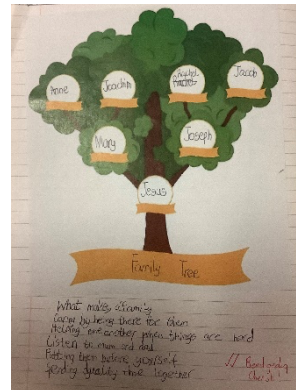 Anne
Joachin
Rachel
Jacob
Mary
Joseph
Jesus
Family Tree
What makes a family
Caring by being there for them
Helping one another when things are hard
Listen to mum and dad
Putting them before yourself
Spending quality time together